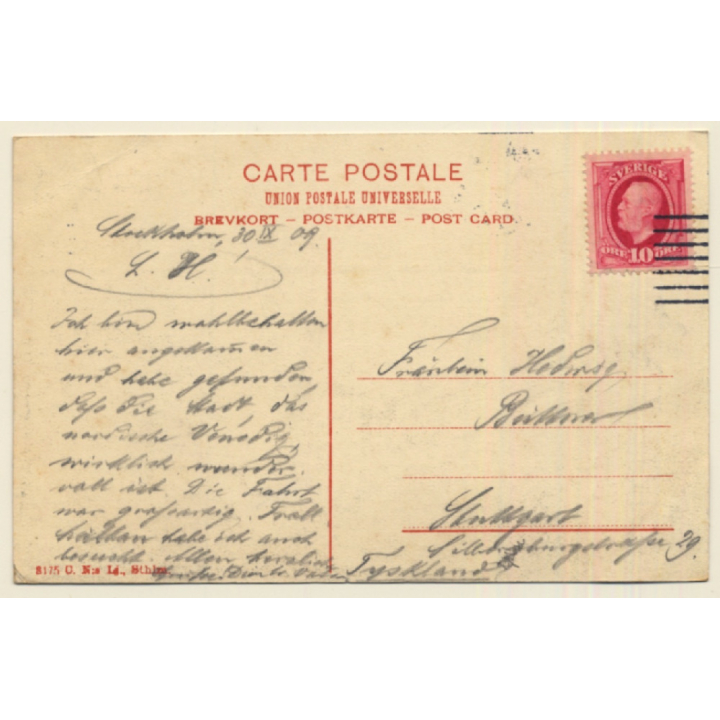 CARTE POSTALE
UNION POSTALE UNIVERSELLE
BREVKORT – POSTKARTE – POST CARD.
SVERIGE
ÖRE 10 ÖRE
Stockholm, 30 IX 09.
L. H!
Ich bin wohlbehalten
hier angekommen
und habe gefunden,
daß die Stadt, das
nordische Venedig,
wirklich wunder-
voll ist. Die Fahrt
war großartig. Troll
hättan habe ich auch
besucht. Allen herzlich
Grüße
Fräulein Hedwig
Stuttgart
29.
Tyskland